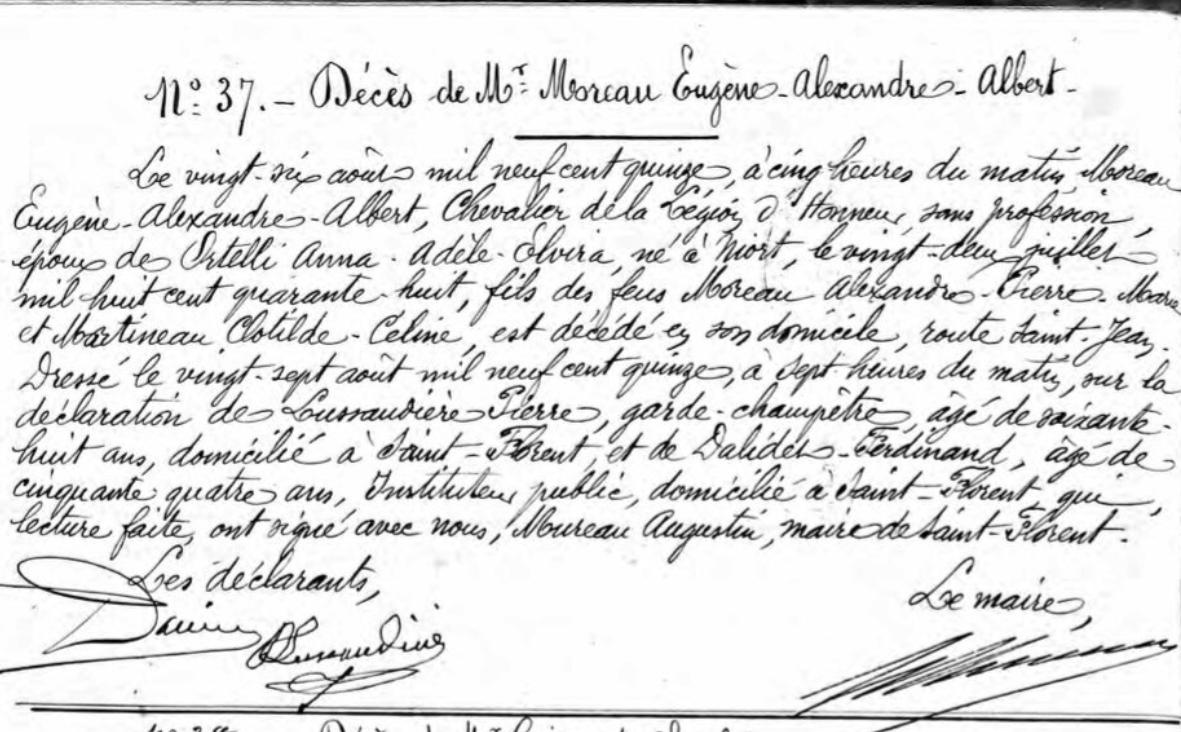 N° 37. – Décès de Mr Moreau Eugène-Alexandre-Albert-
Le vingt-six août mil neuf cent quinze, à cinq heures du matin, Moreau
Eugène-Alexandre-Albert, Chevalier de la Légion d'Honneur, sans profession,
époux de Ortelli Anna-Adèle-Elvira, né à Niort, le vingt-deux juillet
mil huit cent quarante-huit, fils des feus Moreau Alexandre-Pierre-Marie
et Martineau Clotilde-Céline, est décédé en son domicile, route Saint-Jean.
Dressé le vingt-sept août mil neuf cent quinze, à sept heures du matin, sur la
déclaration de Lussaudière Pierre, garde-champêtre, âgé de soixante-
huit ans, domicilié à Saint-Florent, et de Dalidet Ferdinand, âgé de
cinquante quatre ans, Instituteur public, domicilié à Saint-Florent, qui,
lecture faite, ont signé avec nous, Mureau Augustin, maire de Saint-Florent.
Les déclarants,
Le maire,
Décès de Mr